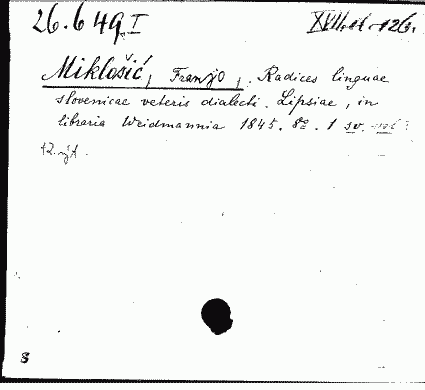 26.649.I XVII.
Miklošić, Franjo, . Radices linguae
slovenicae veteris dialecti. Lipsiae, in
libraria Weidmannia 1845. 8º. 1 sv.
8